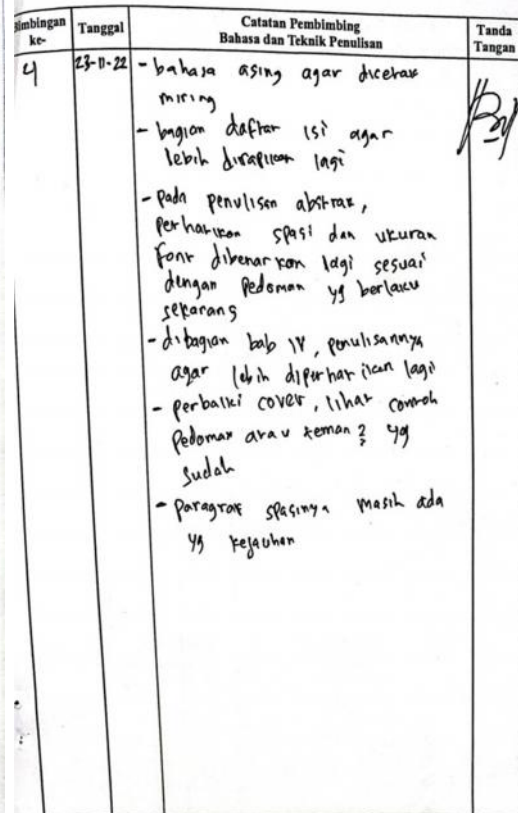 Bimbingan ke-
Tanggal
Catatan Pembimbing
Bahasa dan Teknik Penulisan
Tanda Tangan
4
23-11-22
- bahasa asing agar dicetak
miring
- bagian daftar isi agar
lebih dirapikan lagi
- pada penulisan abstrak,
perhatikan spasi dan ukuran
font dibenarkan lagi sesuai
dengan pedoman yg berlaku
sekarang
- dibagian bab IV, penulisannya
agar lebih diperhatikan lagi
- perbaiki cover, lihat contoh
pedoman atau teman2 yg
sudah
- paragraf spasinya masih ada
yg kejauhan